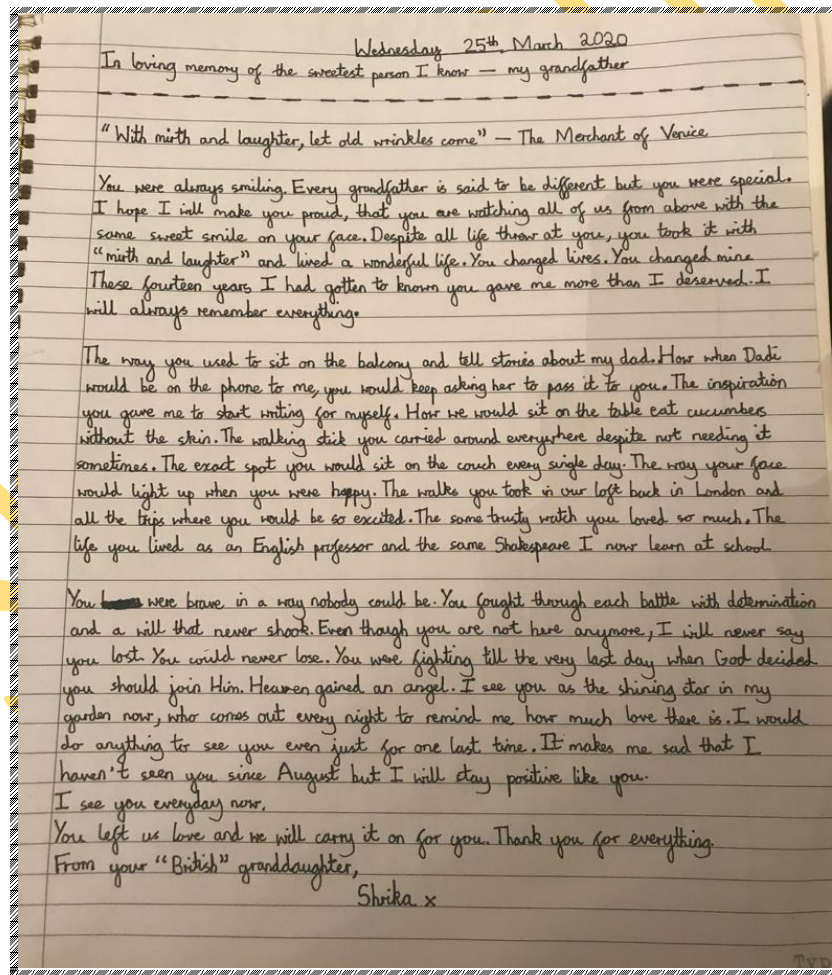 Wednesday 25th March 2020
In loving memory of the sweetest person I know — my grandfather
"With mirth and laughter, let old wrinkles come" — The Merchant of Venice
You were always smiling. Every grandfather is said to be different but you were special.
I hope I will make you proud, that you are watching all of us from above with the
same sweet smile on your face. Despite all life threw at you, you took it with
"mirth and laughter" and lived a wonderful life. You changed lives. You changed mine
These fourteen years I had gotten to known you gave me more than I deserved. I
will always remember everything.
The way you used to sit on the balcony and tell stories about my dad. How when Dadi
would be on the phone to me, you would keep asking her to pass it to you. The inspiration
you gave me to start writing for myself. How we would sit on the table eat cucumbers
without the skin. The walking stick you carried around everywhere despite not needing it
sometimes. The exact spot you would sit on the couch every single day. The way your face
would light up when you were happy. The walks you took in our loft back in London and
all the trips where you would be so excited. The same trusty watch you loved so much. The
life you lived as an English professor and the same Shakespeare I now learn at school
You were brave in a way nobody could be. You fought through each battle with determination
and a will that never shook. Even though you are not here anymore, I will never say
you lost. You could never lose. You were fighting till the very last day when God decided
you should join Him. Heaven gained an angel. I see you as the shining star in my
garden now, who comes out every night to remind me how much love there is. I would
do anything to see you even just for one last time. It makes me sad that I
haven't seen you since August but I will stay positive like you.
I see you everyday now.
You left us love and we will carry it on for you. Thank you for everything.
From your "British" granddaughter,
Shrika x